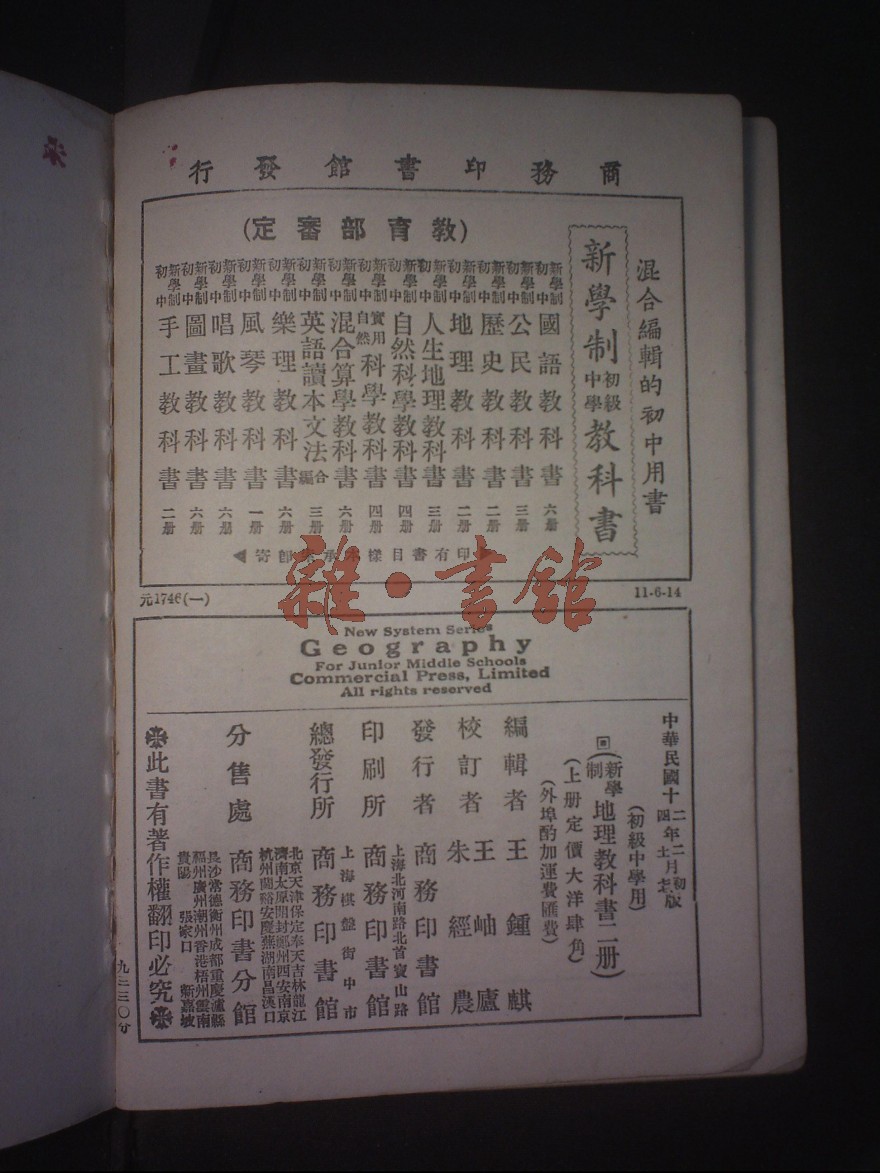 商務印書館發行
混合編輯的初中用書
新學制初級中學教科書
(教育部審定)
新學制初中國語教科書六册
新學制初中公民教科書三册
新學制初中歷史教科書二册
新學制初中地理教科書二册
新學制初中人生地理教科書三册
新學制初中自然科學教科書四册
新學制初中實用自然科學教科書四册
新學制初中混合算學教科書六册
新學制初中英語讀本文法合編三册
新學制初中樂理教科書六册
新學制初中風琴教科書一册
新學制初中唱歌教科書六册
新學制初中圖畫教科書六册
新學制初中手工教科書二册
印有書目樣本承索即寄
元1746(一)
11-6-14
雜·書館
New System Series
Geography
For Junior Middle Schools
Commercial Press, Limited
All rights reserved
中華民國十二年二月初版
(初級中學用)
回(新學制地理教科書二册)
(上册定價大洋肆角)
(外埠酌加運費匯費)
編輯者 王鍾麒
校訂者 王岫廬 朱經農
發行者 商務印書館
上海北河南路北首寶山路
印刷所 商務印書館
上海棋盤街中市
總發行所 商務印書館
北京天津保定奉天吉林龍江
濟南太原開封鄭州西安南京
杭州蘭谿安慶蕪湖南昌漢口
分售處 商務印書分館
長沙常德衡州成都重慶瀘縣
福州廣州潮州香港梧州雲南
貴陽 張家口 新嘉坡
此書有著作權翻印必究
九二三〇分